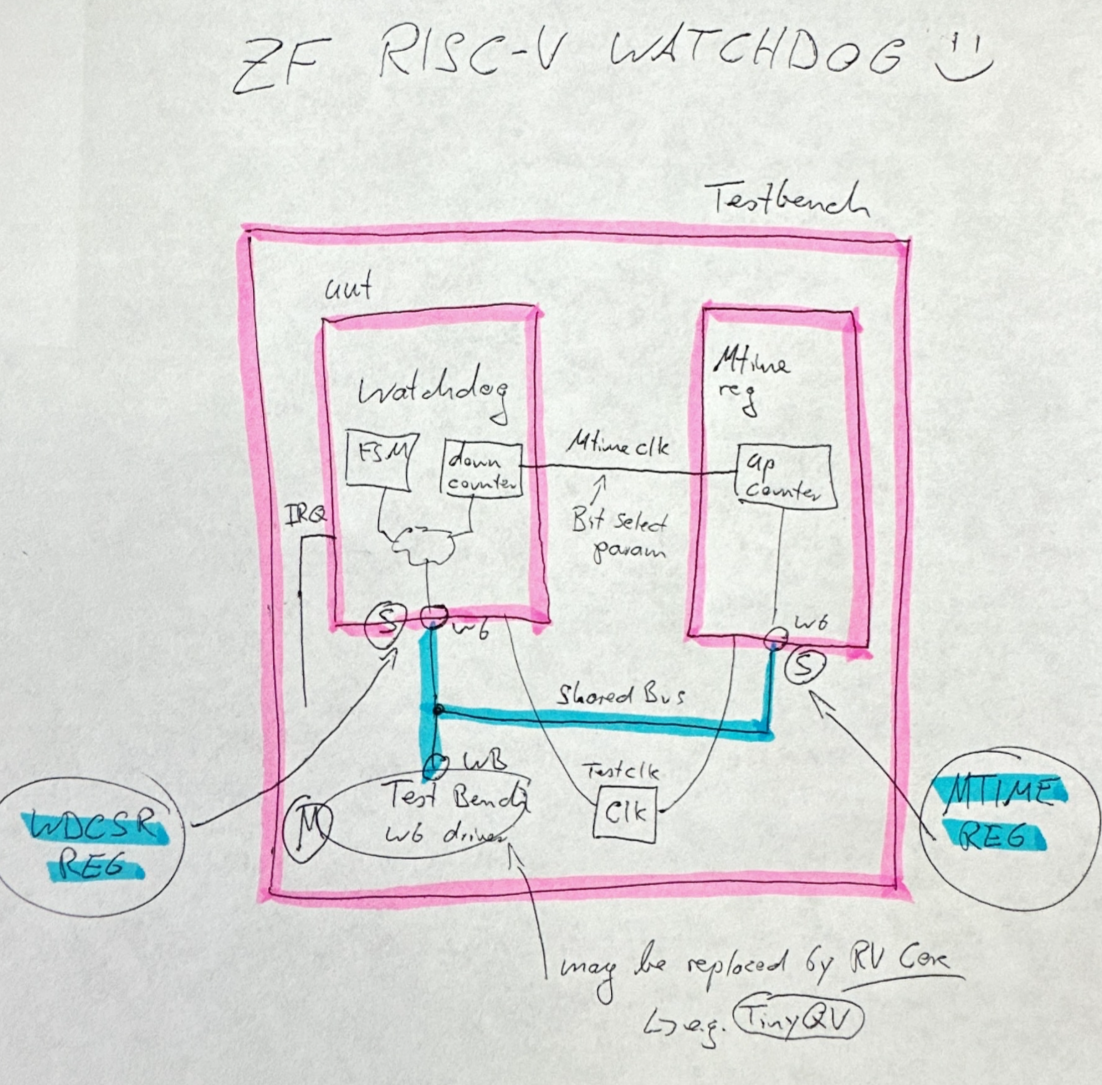 ZF RISC-V WATCHDOG
Testbench
uut
Watchdog
FSM
down
counter
IRQ
Mtime clk
Bit select
param
Mtime
reg
up
counter
S
wb
wb
S
Shared Bus
WB
Testclk
Clk
M
Test Bench
wb driver
WDCSR
REG
MTIME
REG
may be replaced by RV Core
↳ e.g. TinyQV